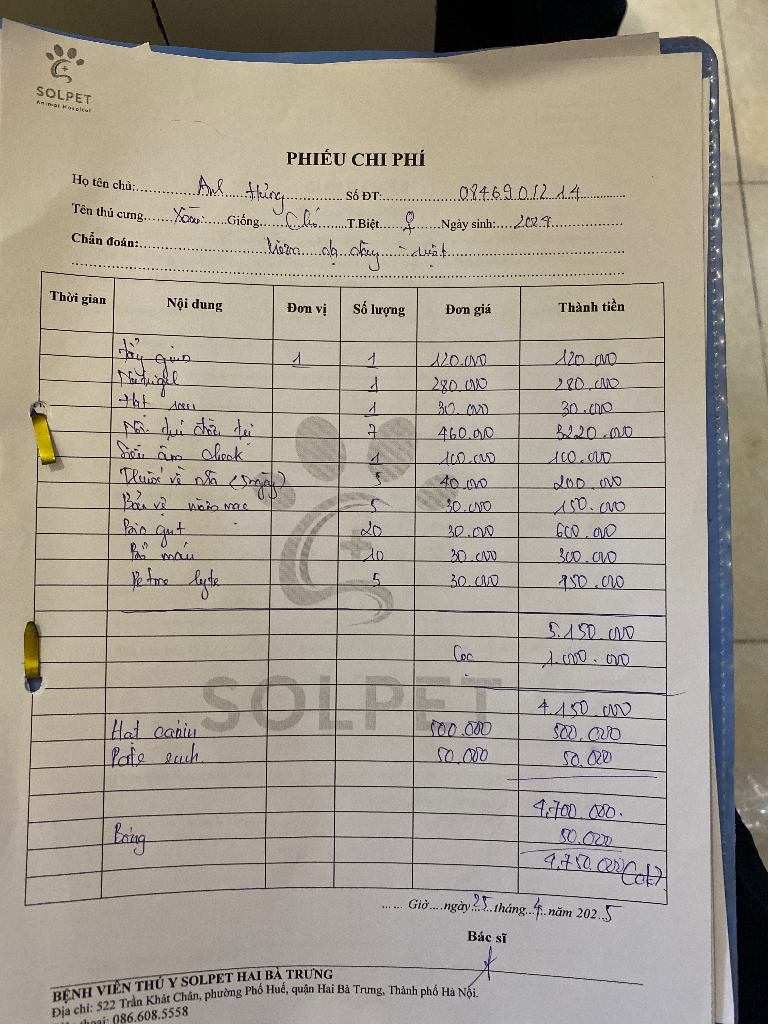 SOLPET
Animal Hospital
PHIẾU CHI PHÍ
Họ tên chủ: Anh Hùng Số ĐT: 0846901214
Tên thú cưng Xoài Giống Chó T.Biệt ♀ Ngày sinh: 2024
Chẩn đoán: Viêm dạ dày - ruột
Thời gian Nội dung Đơn vị Số lượng Đơn giá Thành tiền
Tẩy giun 1 1 120.000 120.000
Nutrigel 1 280.000 280.000
Hạt 1 30.000 30.000
Nội trú điều trị 7 460.000 3220.000
Siêu âm check 1 100.000 100.000
Thuốc về nhà (5 ngày) 5 40.000 200.000
Bảo vệ niêm mạc 5 30.000 150.000
Bio gut 20 30.000 600.000
Bổ máu 10 30.000 300.000
Petme lyte 5 30.000 150.000
5.150.000
Cọc 1.000.000
4.150.000
SOLPET
Hạt canin 500.000 500.000
Pate 50.000 50.000
4.700.000.
Bóng 50.000
4.750.000
...... Giờ....ngày 25 tháng 4 năm 2025
Bác sĩ
BỆNH VIỆN THÚ Y SOLPET HAI BÀ TRƯNG
Địa chỉ: 522 Trần Khát Chân, phường Phố Huế, quận Hai Bà Trưng, Thành phố Hà Nội.
thoại: 086.608.5558